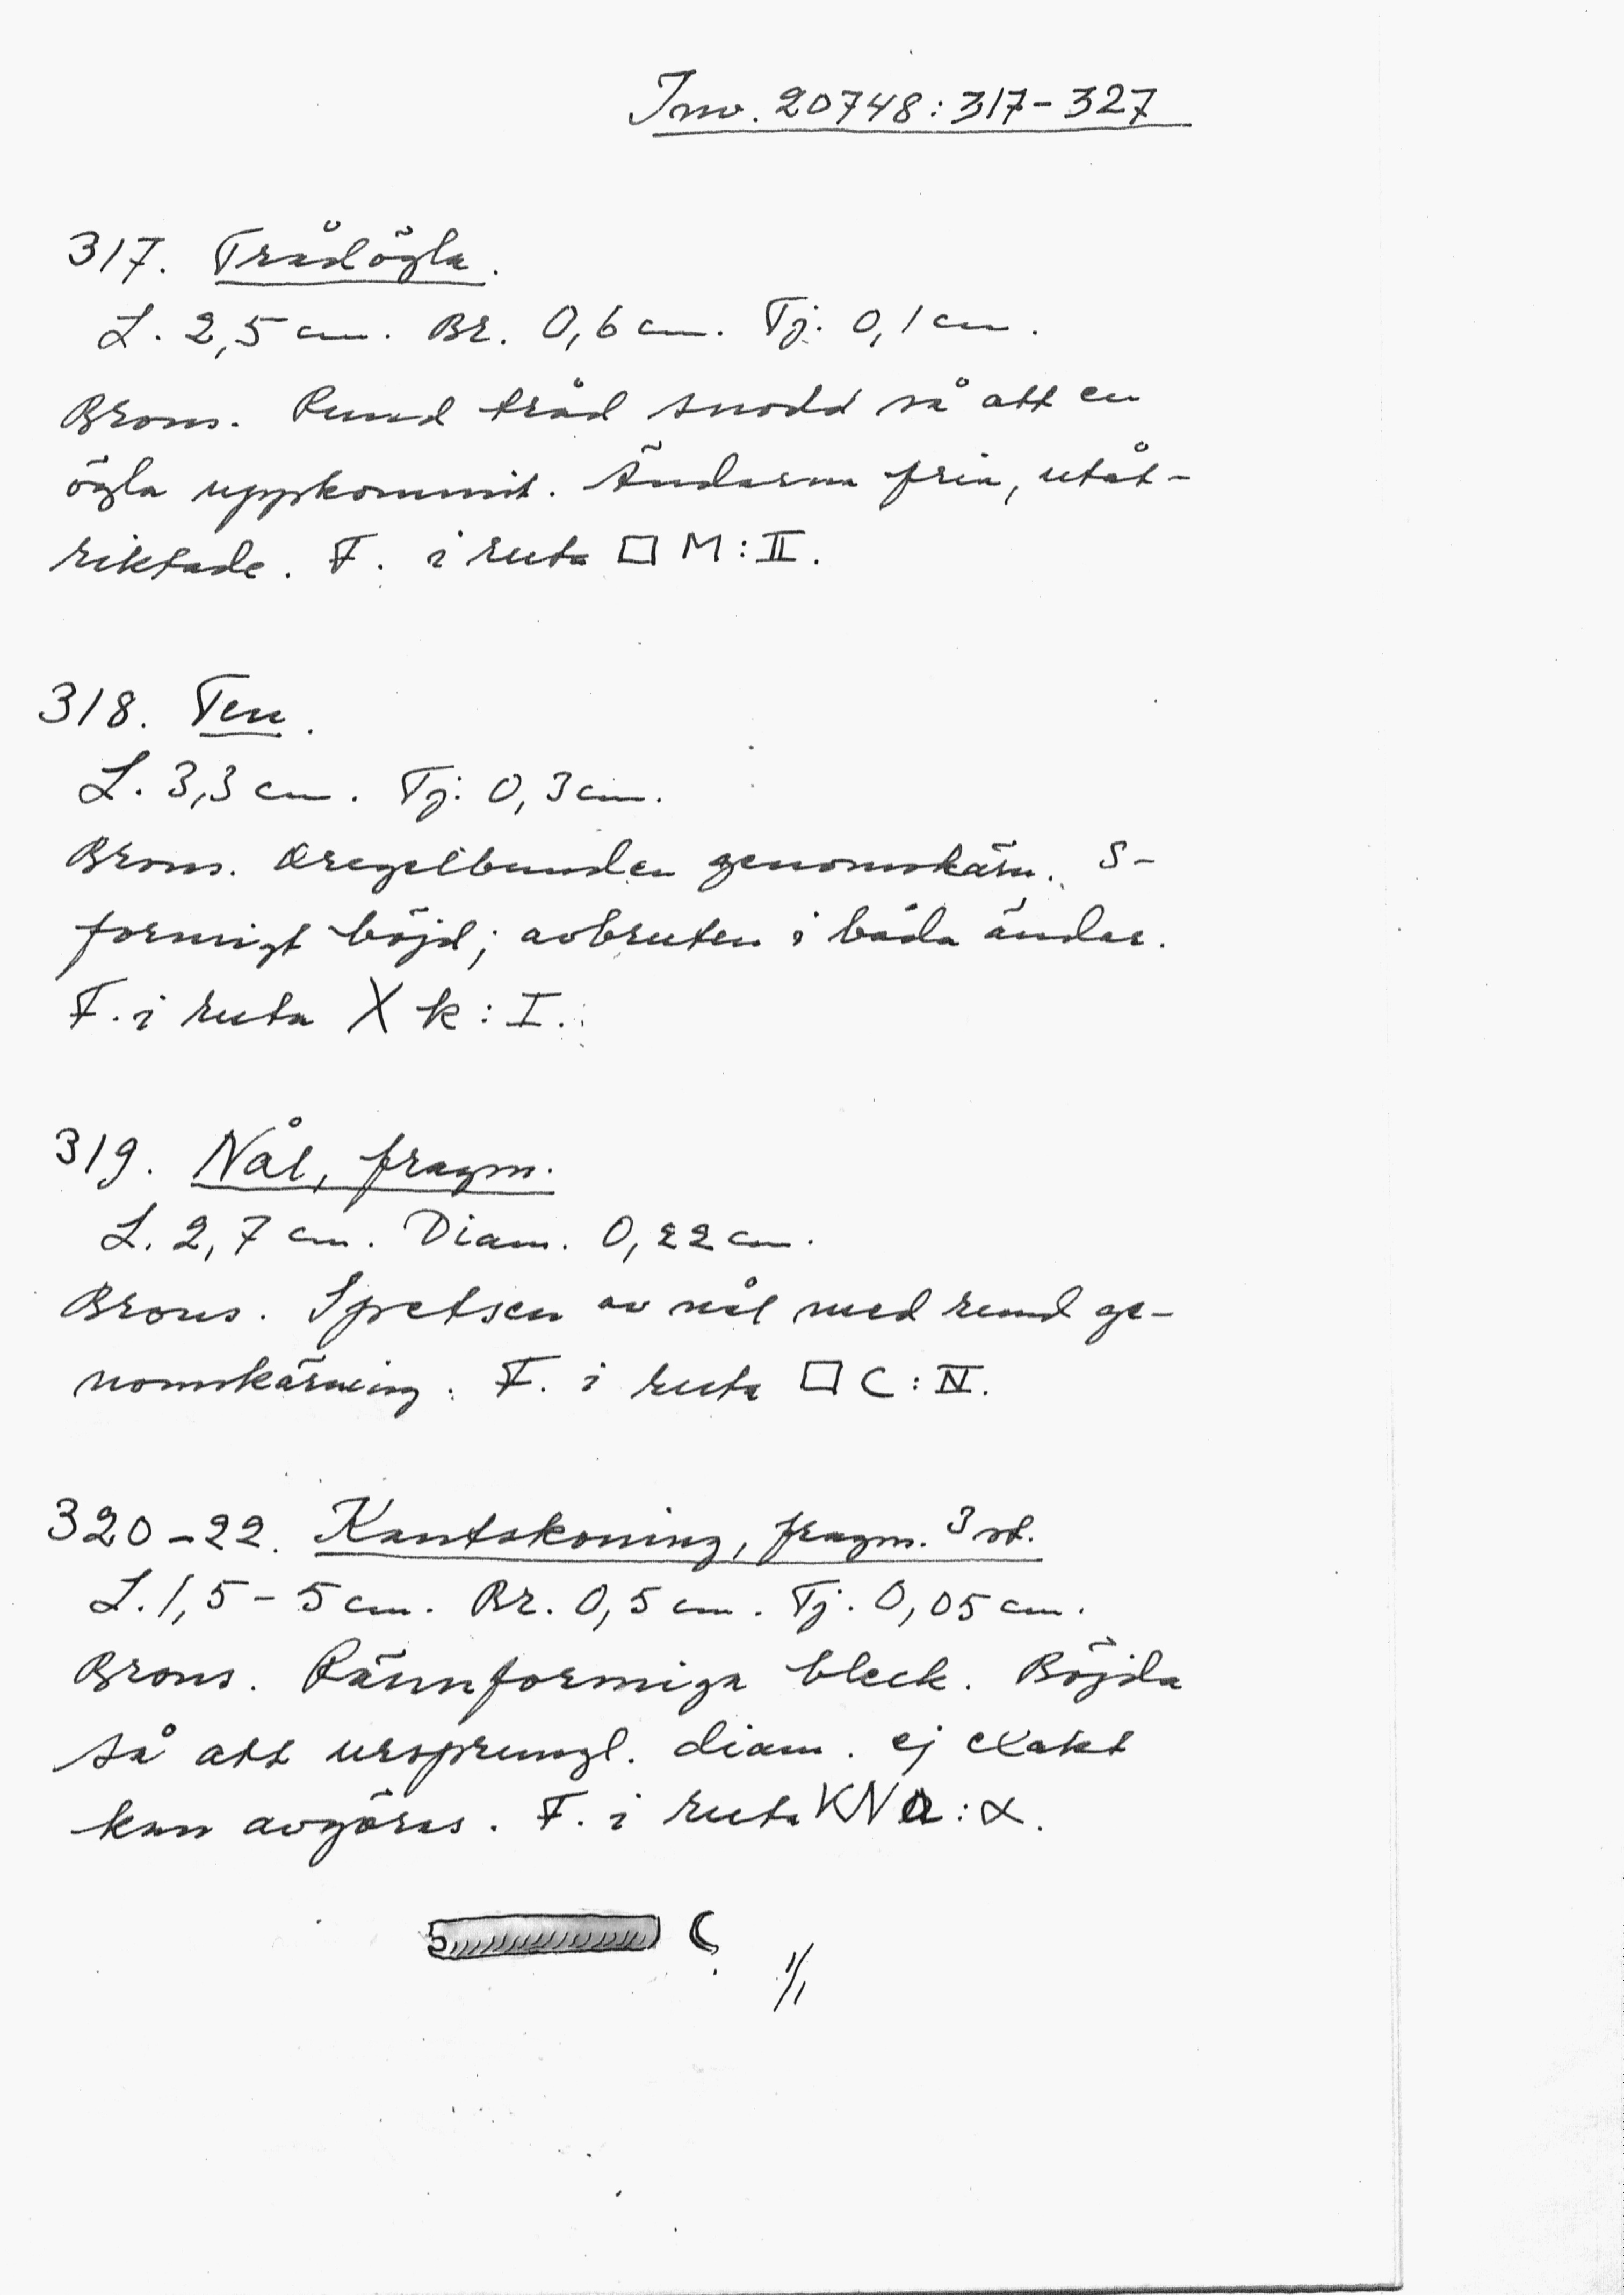 Inv. 20748:317-327
317. Trådögla.
L. 2,5 cm. Br. 0,6 cm. Tj. 0,1 cm.
Brons. Rund tråd snodd så att en
ögla uppkommit. Ändarna fria, utåt-
riktade. F. i ruta □ M:II.
318. Ten.
L. 3,3 cm. Tj. 0,3 cm.
Brons. Oregelbunden genomskärn. S-
formigt böjd; avbruten i båda ändar.
F. i ruta X k:I.
319. Nål, fragm.
L. 2,7 cm. Diam. 0,22 cm.
Brons. Spetsen av nål med rund ge-
nomskärning. F. i ruta □ C:IV.
320-22. Kantskoning, fragm. 3 st.
L. 1,5-5 cm. Br. 0,5 cm. Tj. 0,05 cm.
Brons. Rännformiga bleck. Böjda
så att ursprungl. diam. ej exakt
kan avgöras. F. i ruta KN :α.
1/1